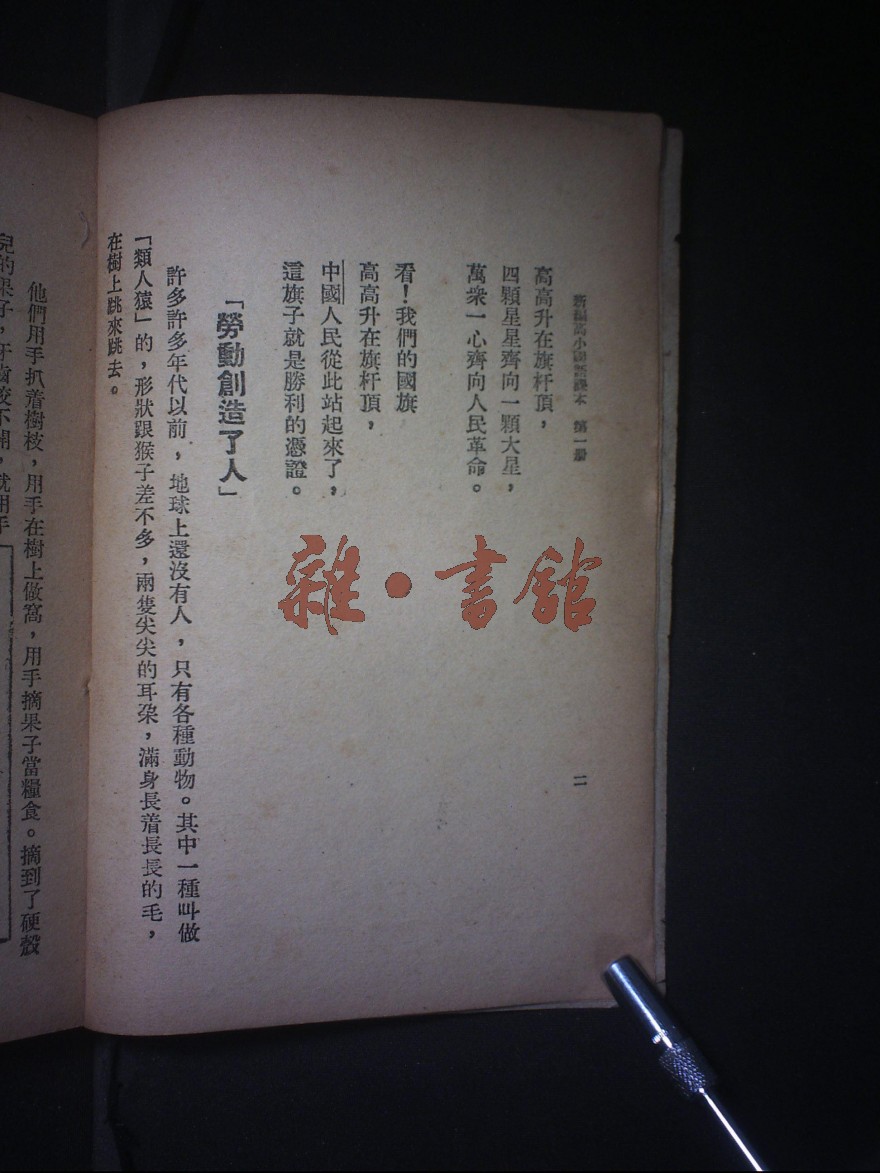 新編高小國語課本 第一册
二
高高升在旗杆頂，
四顆星星齊向一顆大星，
萬衆一心齊向人民革命。
看！我們的國旗
高高升在旗杆頂，
中國人民從此站起來了，
這旗子就是勝利的憑證。
「勞動創造了人」
許多許多年代以前，地球上還沒有人，只有各種動物。其中一種叫做
「類人猿」的，形狀跟猴子差不多，兩隻尖尖的耳朶，滿身長着長長的毛，
在樹上跳來跳去。
他們用手扒着樹枝，用手在樹上做窩，用手摘果子當糧食。摘到了硬殼
兒的果子，牙齒咬不開，就用手
雜·書館